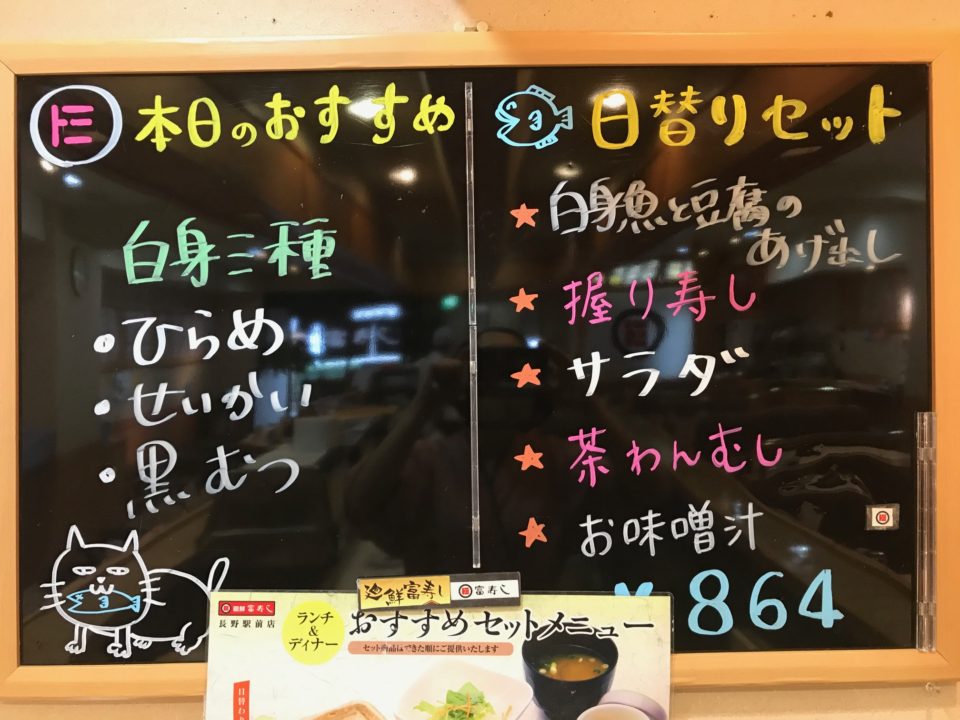 本日のおすすめ
白身三種
・ひらめ
・せいかい
・黒むつ
日替りセット
★白身魚と豆腐の
あげ出し
★握り寿し
★サラダ
★茶わんむし
★お味噌汁
¥864
廻鮮富寿し 富寿し
廻鮮富寿し
長野駅前店
ランチ
&
ディナー
おすすめセットメニュー
セット商品はできた順にご提供いたします
日替わり